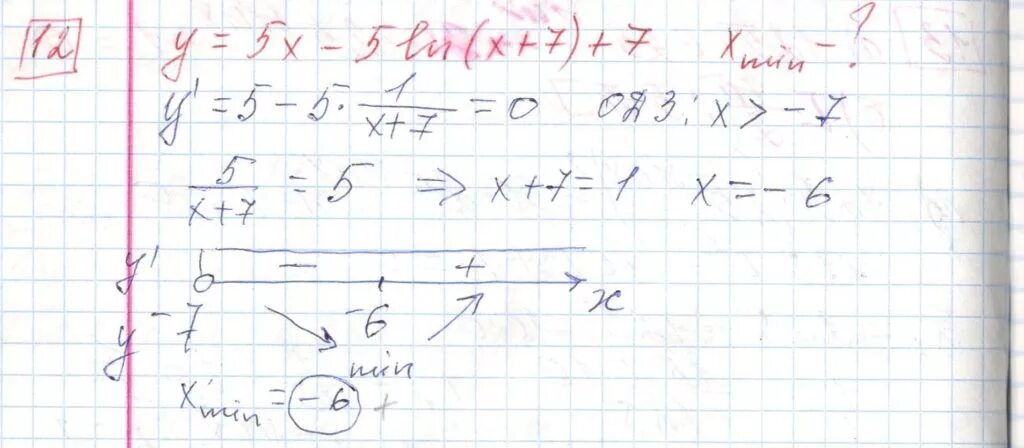 12 y = 5x - 5 ln(x+7) + 7 x min - ?
y' = 5 - 5 · 1/(x+7) = 0 ОДЗ: x > -7
5/(x+7) = 5 ⇒ x+7 = 1 x = -6
y' - +
-7 -6 x
y ↘ min ↗
x min = -6 +